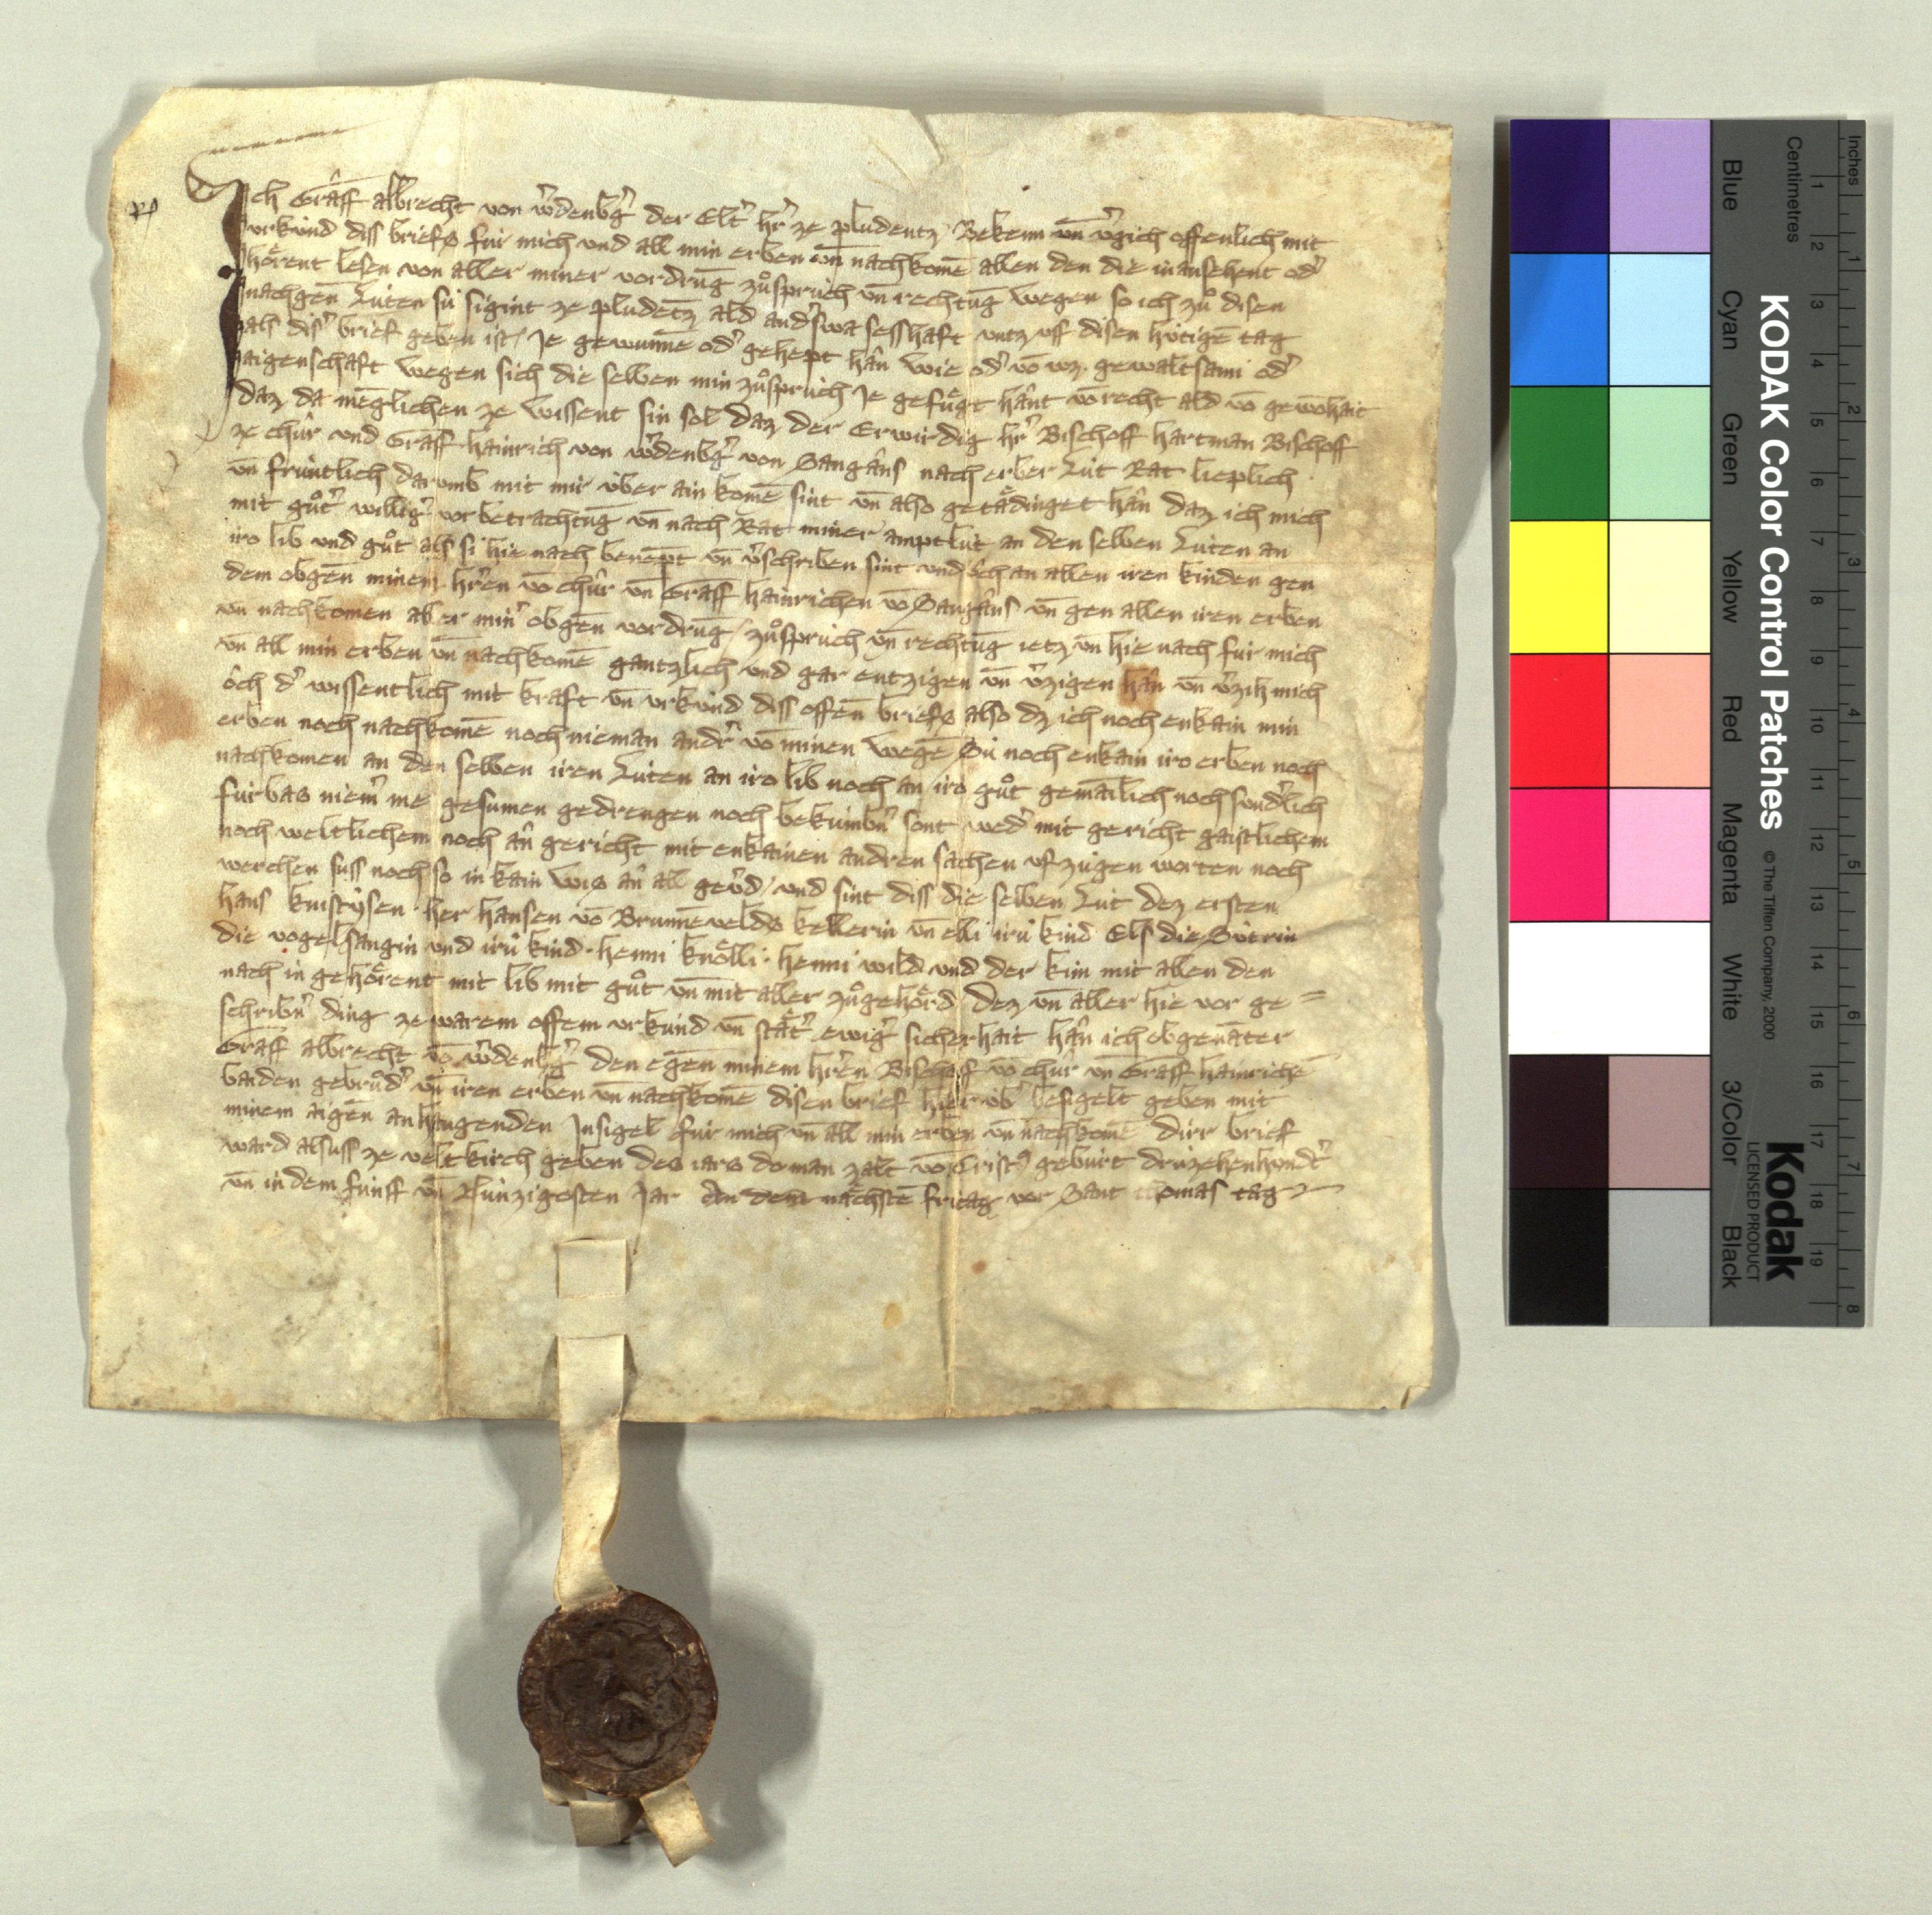 Ich Grâff albrecht von w̓denbg̓ der Elt̓ hr̓ ze pludentz Bekenn vn̄ v̓gich offenlich mit
vrkúnd diss briefs fúr mich vnd all min erben vn̄ nachkomē allen den die in ansehent od̓
hoͤrent lesen von aller miner vordrūg zuͦspruch vn̄ rechtūg wegen so ich zuͦ disen
nachgen̄ Lúten sú sigint ze pludētz ald and̓swa sesshaft vntz vff disen hútigē tag
als dis̓ brief geben ist / Je gewunnē od̓ gehept hân wie od̓ vō wz gewaltsami od̓
aigenschaft wegen sich die selben min zuͦspruch Je gefuͤgt hânt vō recht ald vō gewōhait
daz da mēglichen ze wissent sin sol daz der Erwirdig hr̓ Bischoff hartman Bischoff
ze chûr vnd Grâff hainrich von w̓denbg̓ von Sangâns nach erber Lút Rat lieplich
vn̄ frúntlich darumb mit mir úber ain komē sint vn̄ also getaͤdinget hân daz ich mich
mit guͦt̓ willig̓ vorbetrachtūg vn̄ nach Rat miner amptlút an den selben Lúten an
iro lib vnd guͦt als si hie nach benēpt vn̄ v̓schriben sint vnd ôch an allen iren kinden gen
dem obgen̄ minem hr̓en vō chûr vn̄ Grâff hainrichen vō Sangâns vn̄ gen allen iren erben
vn̄ nachkomen aller min̓ obgen̄ vordrūg / zuͦspruch vn̄ rechtūg ietz vn̄ hie nach fúr mich
vn̄ all min erben vn̄ nachkomē gantzlich vnd gar entzigen vn̄ v̓zigen hân vn̄ v̓zih mich
ôch d̓ wissentlich mit kraft vn̄ vrkúnd diss offen̄ briefs also dz ich noch enkain min
erben noch nachkomē noch nieman andr̓ vō minen wegē Sú noch enkain iro erben noch
nachkomen an den selben iren Lúten an iro lib noch an iro guͦt gemainlich noch sund̓lich
fúrbas niem̓ me gesumen gedrengen noch bekúmbn̓ sont wed̓ mit gericht gaistlichem
noch weltlichem noch ân gericht mit enkainen andren sachen vfzúgen worten noch
werchen suss noch so in kain wis ân all gev̓d / vnd sint diss die selben Lút dez ersten
hans her hansen vō Brunnēvelds kellerin vn̄ elli irú kind Els die Suterin
die vogelsangin vnd irú kind · henni knoͤlli · henni wild vnd der kim mit allen den
nach in gehoͤrent mit lib mit guͦt vn̄ mit aller zuͦgehoͤrd dez vn̄ aller hie vor ge =
schribn̓ ding ze warem offem vrkúnd vn̄ staͤt̓ ewig̓ sicherhait hân ich obgenāter
Grâff albrecht vō w̓denbg̓ den egen̄ minem hr̓en Bischoff vō chur vn̄ Grâff hainrichē
baiden gebruͤd̓ vn̄ iren erben vn̄ nachkomē disen brief hier vb̓ besigelt geben mit
minem aigen̄ anhangenden Insigel fúr mich vn̄ all min erben vn̄ nachkomē dirr brieff
ward alsuss ze veltkirch geben des iars do man zalt vō Crist⁹ gebúrt drúzehenhund̓t
vn̄ in dem fúnff vn̄ Núnzigosten Jar An dem naͤchstē fritag vor Sant thomas tag
KODAK Color Control Patches
© The Tiffen Company, 2000
Kodak
LICENSED PRODUCT
Inches
Centimetres
1 2 3 4 5 6 7 8 9 10 11 12 13 14 15 16 17 18 19
1 2 3 4 5 6 7 8
Blue
Cyan
Green
Yellow
Red
Magenta
White
3/Color
Black